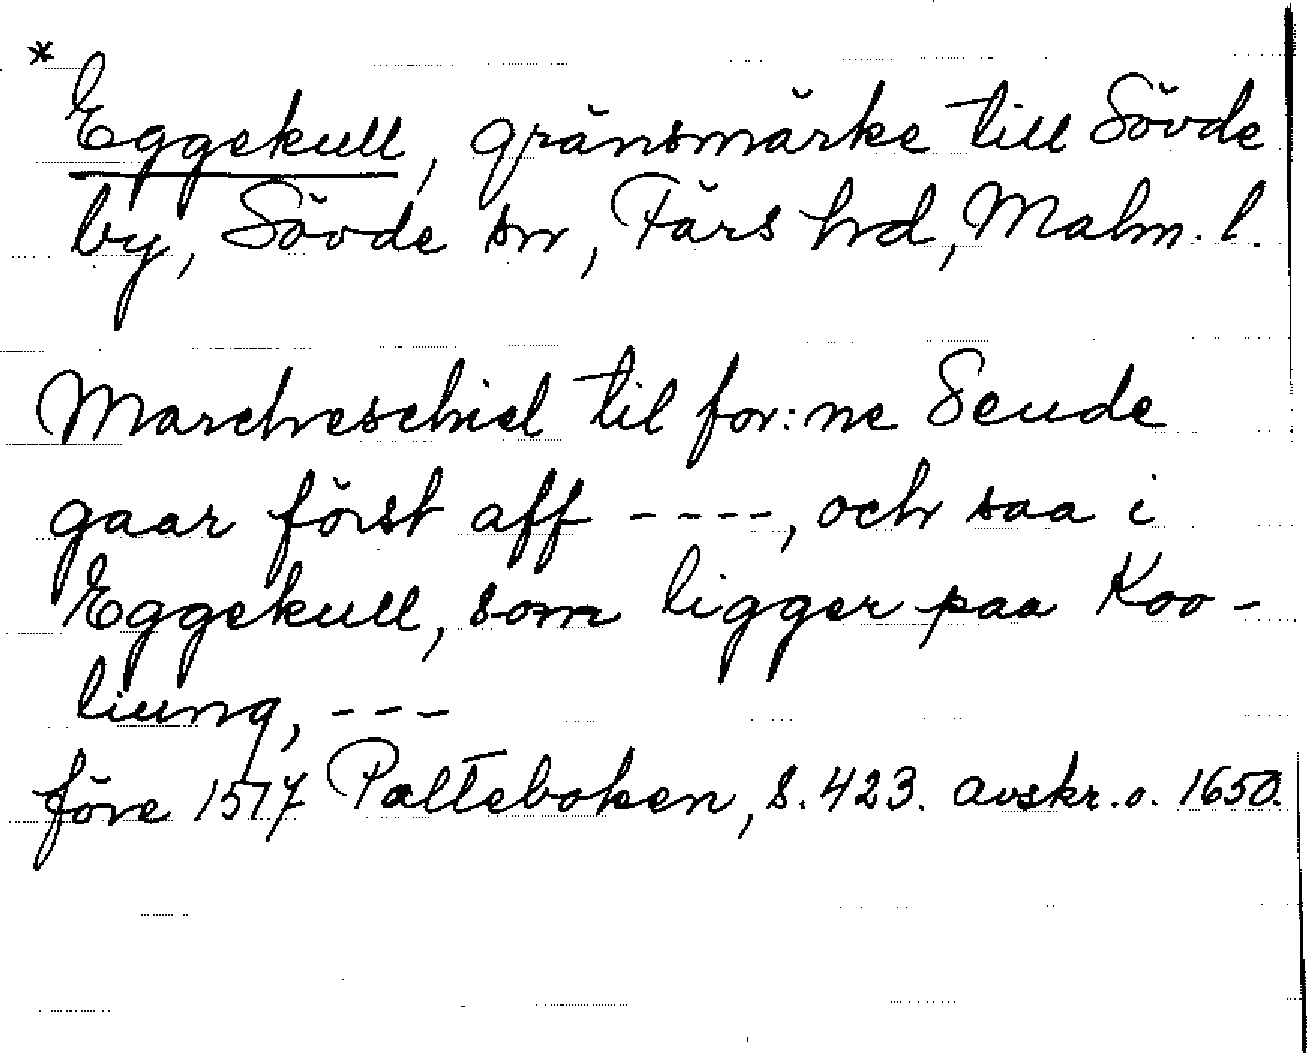 *
Eggekull, gränsmärke till Sövde
by, Sövde sn, Färs hd, Malm. l.
Marcheschiel til for:ne Seude
gaar först aff ----, och saa i
Eggekull, som ligger paa Koo-
liung, ---
före 1517 Palteboken, s. 423. avskr. o. 1650.